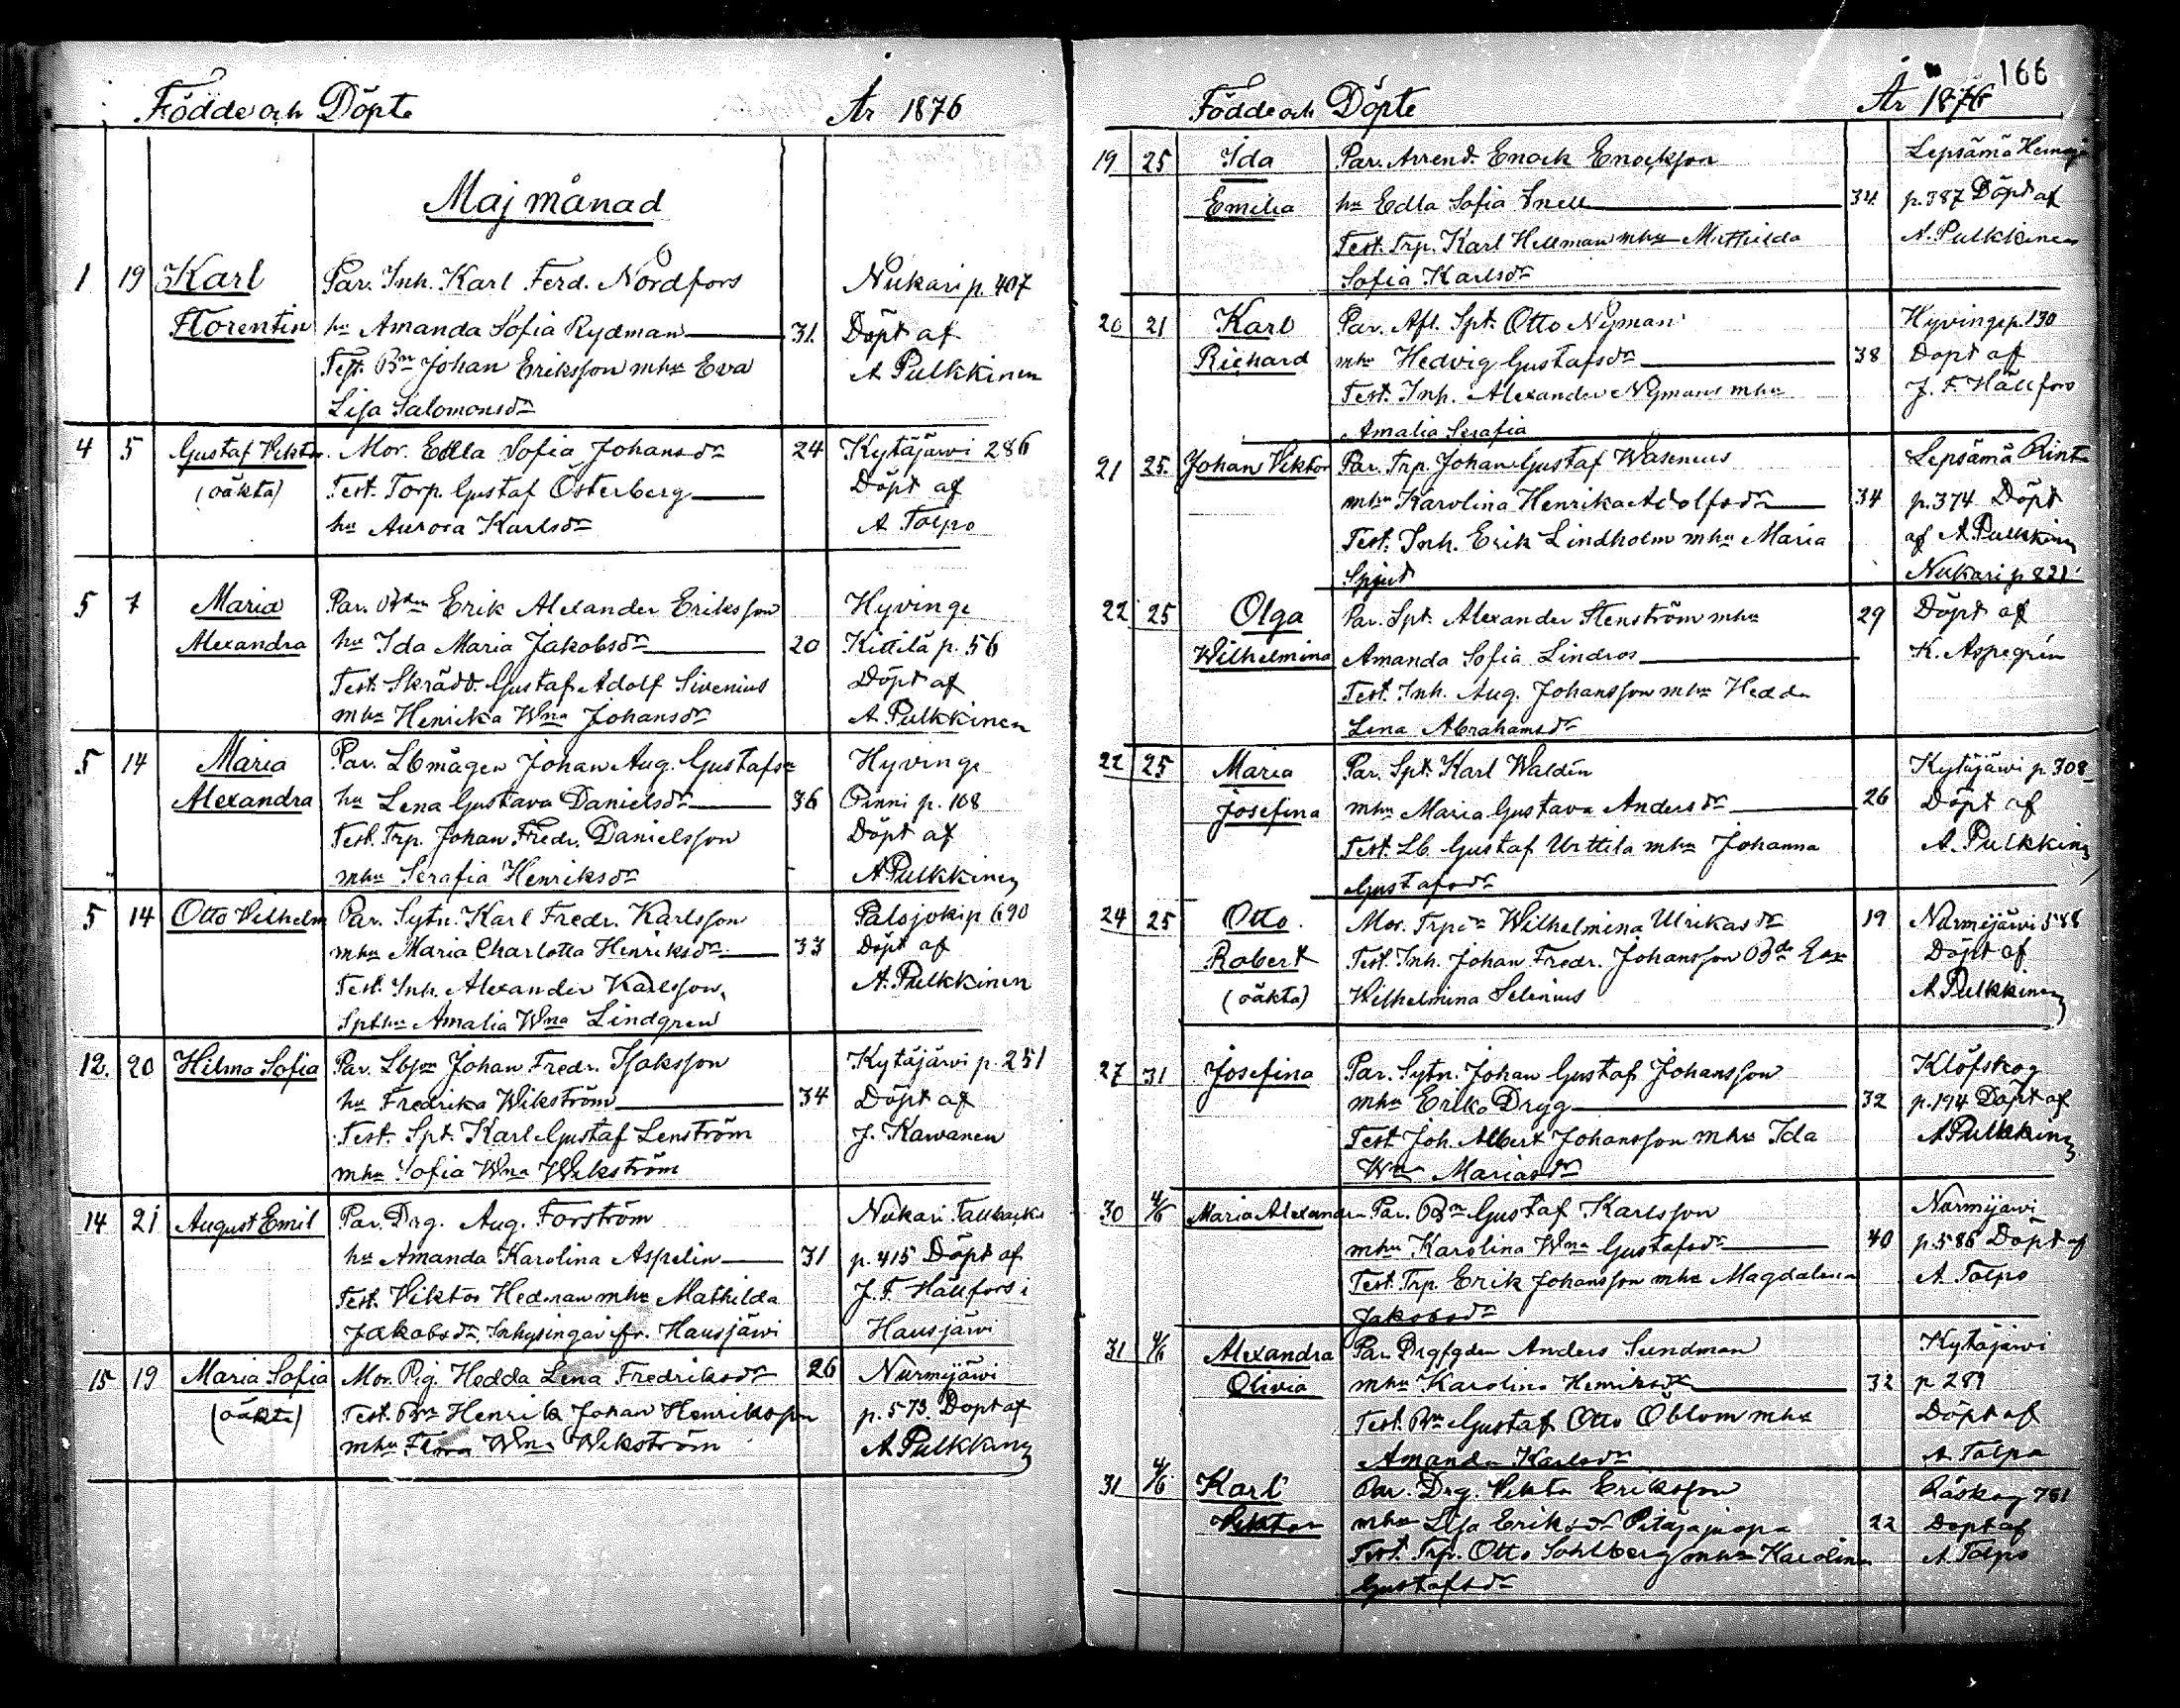 Födde och Döpte År 1876
Maj månad
1 19 Karl Par. Inh. Karl Ferd. Nordfors Nukari p. 407
Florentin hu Amanda Sofia Rydman 31 Döpt af
Test. Bn Johan Eriksson mhu Eva A Pulkkinen
Lisa Salomonsdr
4 5 Gustaf Viktor Mor. Edla Sofia Johansdr 24 Kytäjärvi 286
(oäkta) Test. Torp. Gustaf Österberg Döpt af
hu Aurora Karlsdr A Tolpo
5 7 Maria Par. Erik Alexander Eriksson Hyvinge
Alexandra hu Ida Maria Jakobsdr 20 Kittilä p. 56
Test. Skrädd. Gustaf Adolf Sivenius Döpt af
mhu Henrika Wna Johansdr A. Pulkkinen
5 14 Maria Par. Lbmågen Johan Aug. Gustafsn Hyvinge
Alexandra hu Lena Gustava Danielsdr 36 Pinni p. 108
Test. Trp. Johan Fredr. Danielsson Döpt af
mhu Serafia Henriksdr A. Pulkkinen
5 14 Otto Vilhelm Par. Sytn. Karl Fredr. Karlsson Palojoki p 690
mhu Maria Charlotta Henriksdr 33 Döpt af
Test. Inh. Alexander Karlsson, A. Pulkkinen
Spthu Amalia Wna Lindgren
12. 20 Hilma Sofia Par. Lbson Johan Fredr. Isaksson Kytäjärvi p. 251
hu Fredrika Wikström 34 Döpt af
Test. Spt. Karl Gustaf Lenström J. Kawanen
mhu Sofia Wna Wikström
14 21 August Emil Par. Drg. Aug. Forström Nukari Tallbacka
hu Amanda Karolina Aspelin 31 p. 415 Döpt af
Test. Viktor Hedman mhu Mathilda J. F. Hällfors i
Jakobsdr. Inhysingar fr. Hausjärvi Hausjärvi
15 19 Maria Sofia Mor. Pig. Hedda Lena Fredriksdr 26 Nurmijärvi
(oäkta) Test. Bn Henrik Johan Henriksson p. 573. Döpt af
mhu Flora Wna Wikström A. Pulkkinen
166
Födde och Döpte År 1876
19 25 Ida Par. Arrend. Enock Enockson Lepsämä
Emilia hu Edla Sofia Snell 34 p. 387 Döpt af
Test. Trp. Karl Hellman mhu Mathilda A. Pulkkinen
Sofia Karlsdr
20 21 Karl Par. Afl. Spt. Otto Nyman Hyvinge p. 130
Richard mhu Hedvig Gustafsdr 38 Döpt af
Test. Inh. Alexander Nyman mhu J. F. Hällfors
Amalia Serafia
21 25. Johan Viktor Par. Trp. Johan Gustaf Wasenius Lepsämä Rinta
mhu Karolina Henrika Adolfsdr 34 p. 374 Döpt
Test. Inh. Erik Lindholm mhu Maria af A. Pulkkinen
Spjut Nukari p 821
22 25 Olga Par. Spt. Alexander Stenström mhu 29 Döpt af
Wilhelmina Amanda Sofia Lindros K. Aspegrén
Test. Inh. Aug. Johansson mhu Hedda
Lena Abrahamsdr
22 25 Maria Par. Spt. Karl Waldin Kytäjärvi p. 308
Josefina mhu Maria Gustava Andersdr 26 Döpt af
Test. Lb. Gustaf Urttila mhu Johanna A. Pulkkinen
Gustafsdr
24 25 Otto Mor. Wilhelmina Ulrikasdr 19 Nurmijärvi 588
Robert Test. Inh. Johan Fredr. Johansson Bdr Eva Döpt af
(oäkta) Wilhelmina Selenius A Pulkkinen
27 31 Josefina Par. Sytn. Johan Gustaf Johansson Klöfskog
mhu Erika Dryg 32 p. 194 Döpt af
Test Joh. Albert Johansson mhu Ida A Pulkkinen
Wna Mariasdr
30 4/6 Maria Alexandra Par. Bn Gustaf Karlsson Nurmijärvi
mhu Karolina Wna Gustafsdr 40 p. 586 Döpt af
Test. Trp. Erik Johansson mhu Magdalena A Tolpo
Jakobsdr
31 4/6 Alexandra Par Anders Sundman Kytäjärvi
Olivia mhu Karolina Henriksdr 32 p 289
Test. Bn Gustaf Otto Öblom mhu Döpt af
Amanda Karlsdr A. Tolpo
31 4/6 Karl Par. Drg. Viktor Eriksson Råskog 751
Viktor mhu Lisa Eriksdr 22 Döpt af
Test. Trp. Otto Sohlberg mhu Karolina A. Tolpo
Gustafsdr